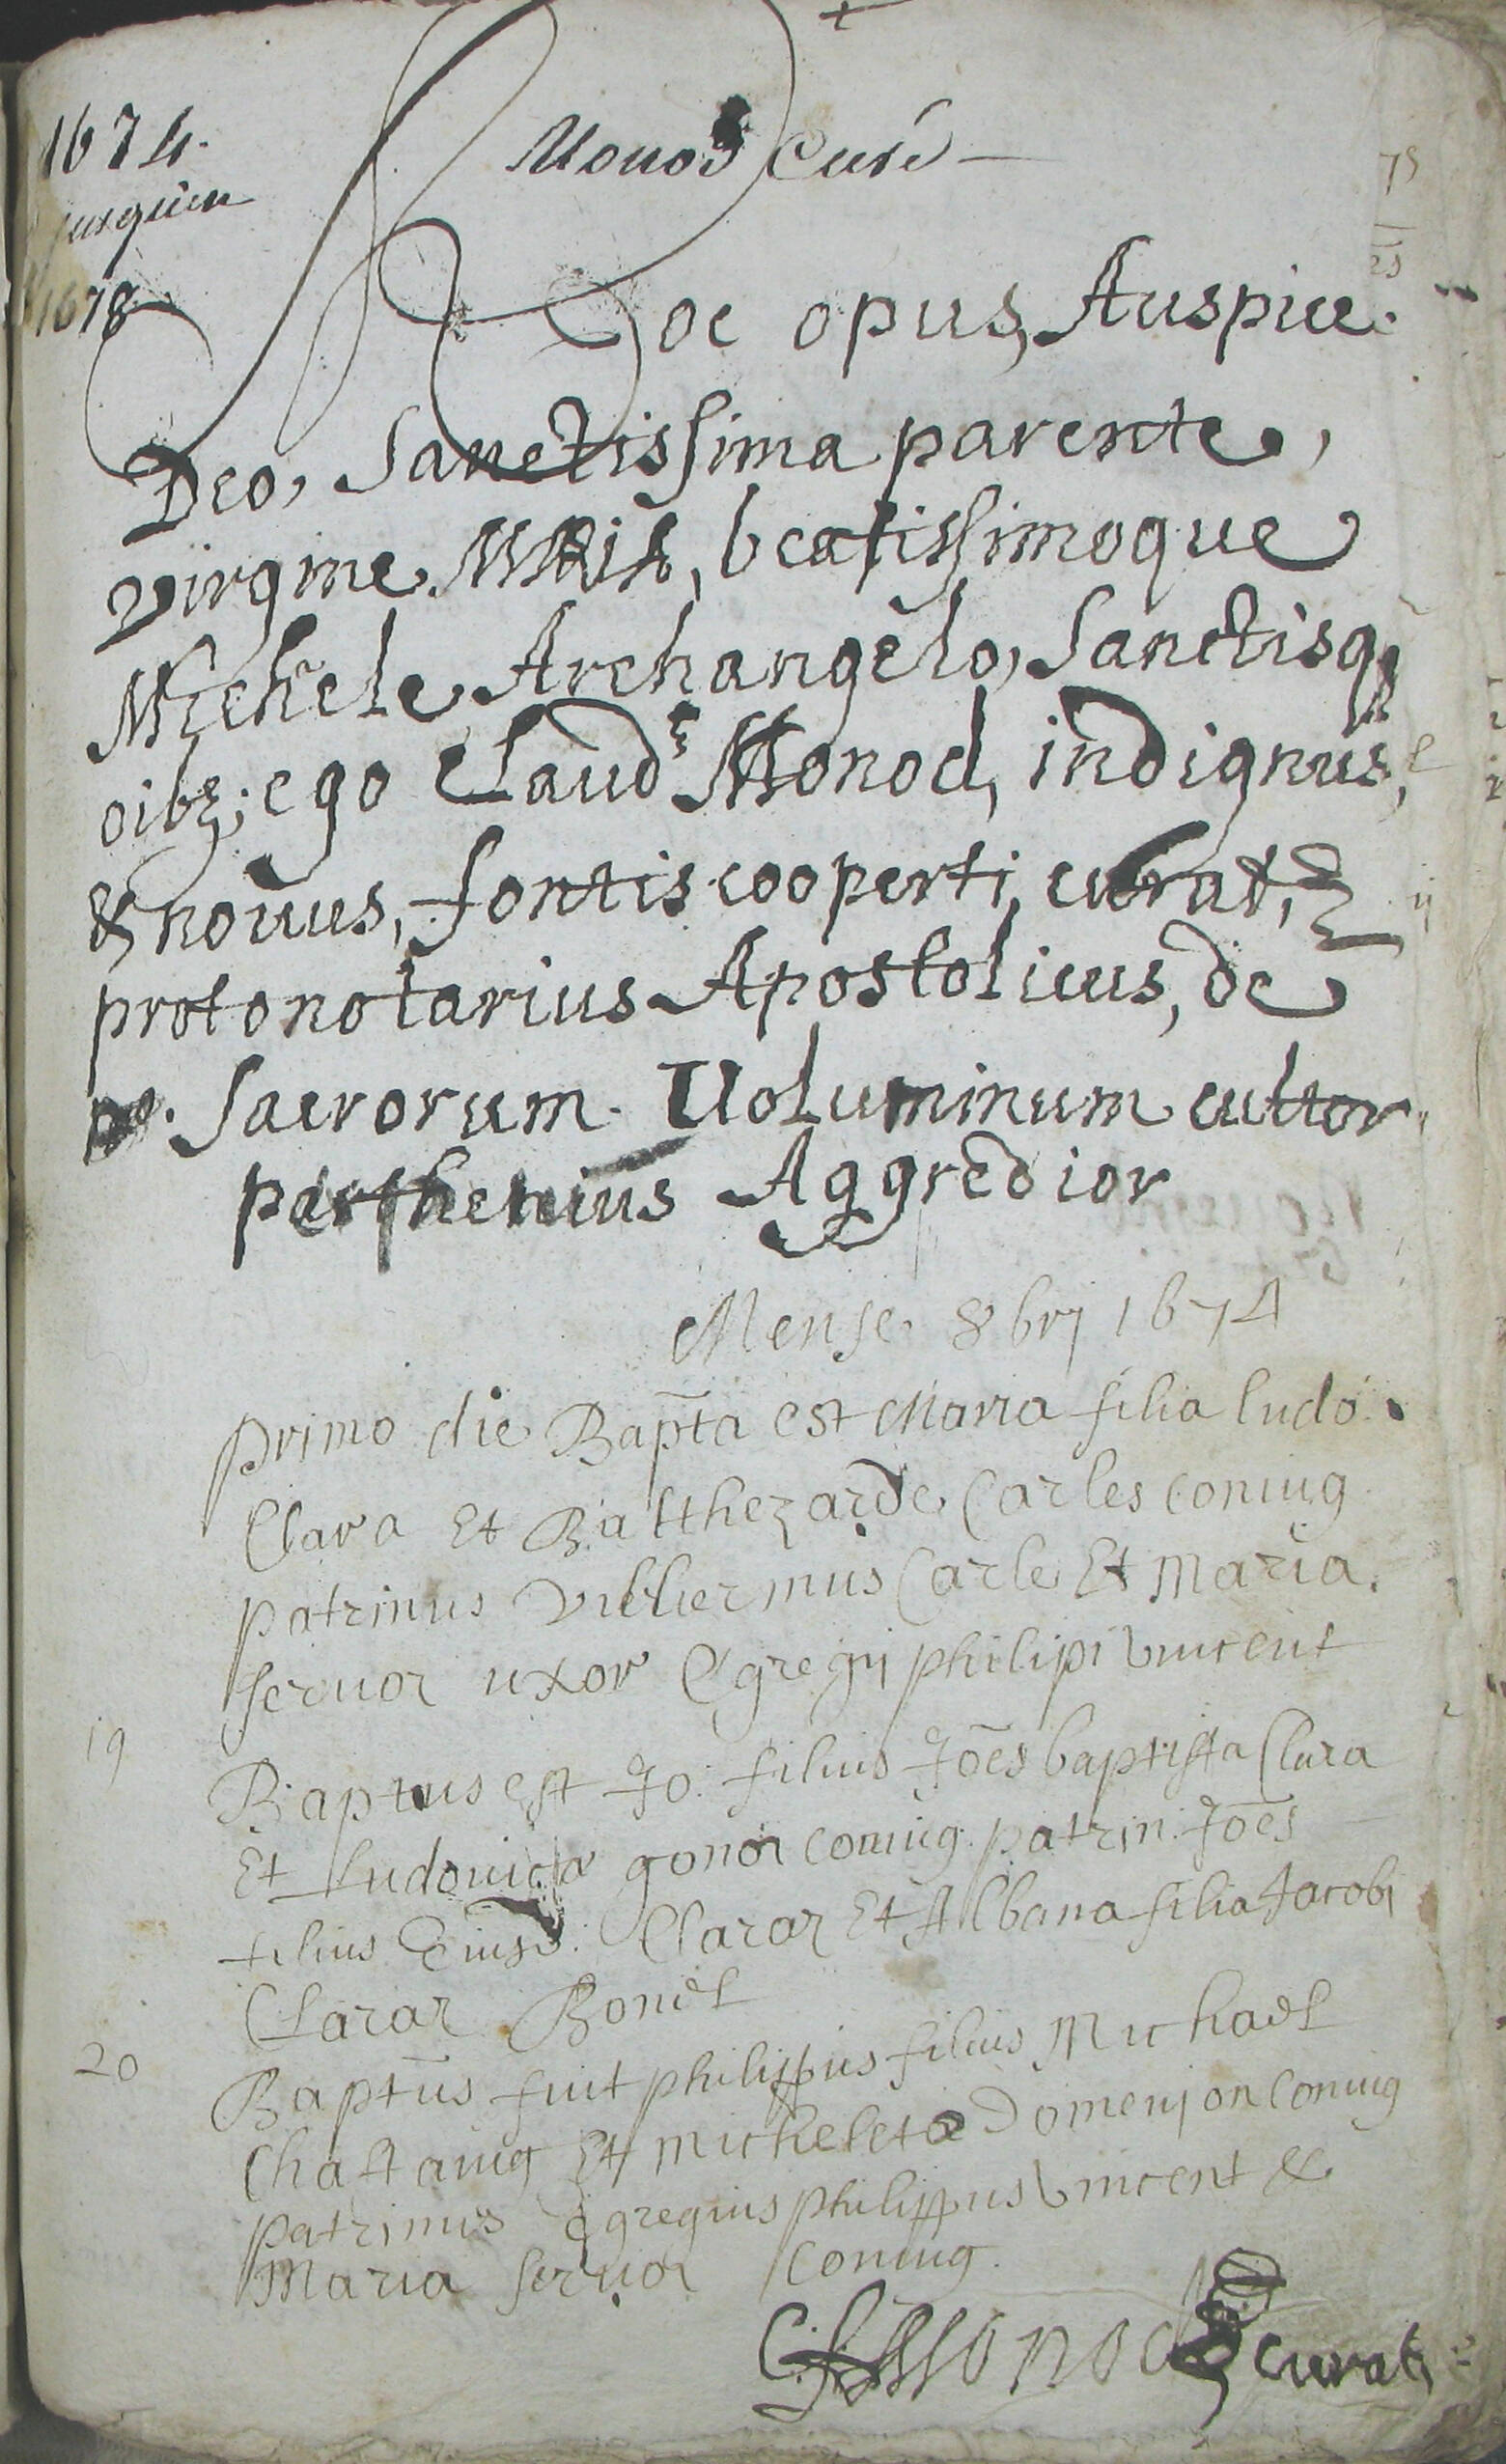 1674.
Monod Curé
jusquien
1678
Hoc opus, Auspice
Deo, Sanctissima parente,
virgine, beatissimoque
Michele Archangelo, Sanctisq;
oib9; ego Claud9 Monod, indignus,
& novus, fontis cooperti curat9,
protonotarius Apostolicus, de
Sacrorum Voluminum cultor
parthenius Aggredior
Mense 8bri 1674
primo die Bapta est Maria filia ludo.
Clara Et Balthezarde Carles coniug
patrinus Villiermus Carle Et Maria
servoz uxor Egregij philipi vincent
19
Baptus est Jo: filius Joes baptista Clara
Et Ludovica gonoz coniug. patrin. Joes
filius Eiusd: Claraz Et Albana filia Jacobi
Claraz Bonet
20
Baptus fuit philippus filius Michael
Chastaing Et Micheleta Domenjon coniug
patrinus Egregius philippus vincent &
Maria servoz coniug.
C. Monod curat9